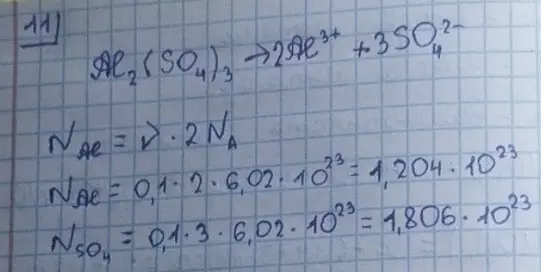 11)
Al₂(SO₄)₃ → 2Al³⁺ + 3SO₄²⁻
N_Al = ν · 2 N_A
N_Al = 0,1 · 2 · 6,02 · 10²³ = 1,204 · 10²³
N_SO₄ = 0,1 · 3 · 6,02 · 10²³ = 1,806 · 10²³